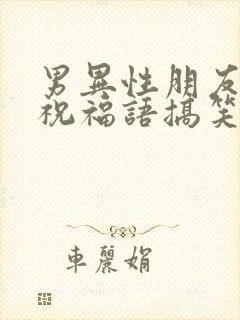 男異性朋友
祝福語搞笑
車麗娟